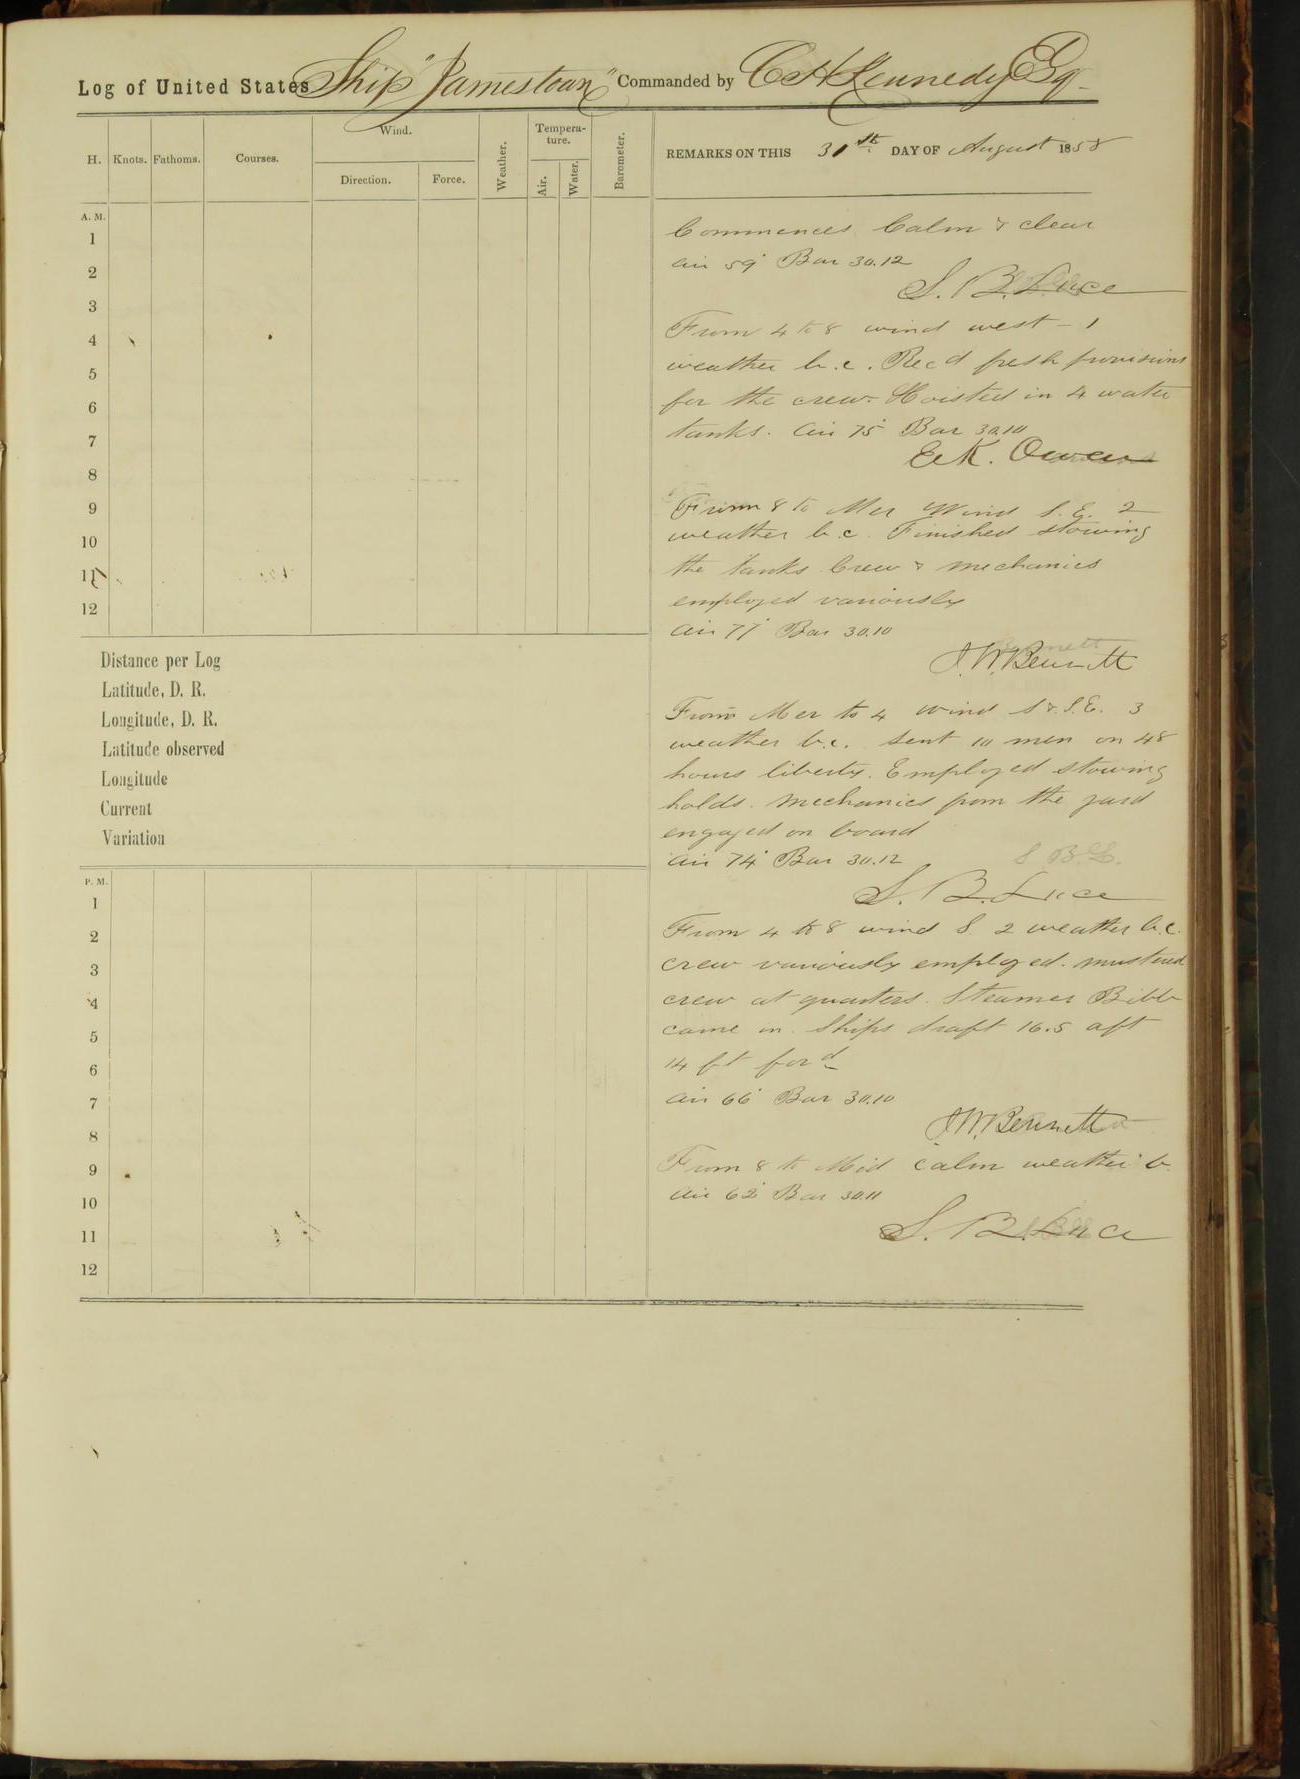 Log of United States Ship "Jamestown" Commanded by C H Kennedy Esq
H. Knots. Fathoms. Courses. Wind. Direction. Force. Weather. Tempera-ture. Air. Water. Barometer. REMARKS ON THIS 31st DAY OF August 1858
A. M.
1
2
3
4
5
6
7
8
9
10
11
12
Commences Calm & clear
Air 59° Bar 30.12
S. B. Luce
From 4 to 8 wind west - 1
weather b.c. Rec'd fresh provisions
for the crew. Hoisted in 4 water
tanks. Air 75° Bar 30.10
E. K. Owen
From 8 to Mer Wind S.E. 2
weather b.c. Finished stowing
the tanks Crew & mechanics
employed variously
Air 77° Bar 30.10
J. W. Bennett
Distance per Log
Latitude, D. R.
Longitude, D. R.
Latitude observed
Longitude
Current
Variation
From Mer to 4 wind S & S.E. 3
weather b.c. Sent 10 men on 48
hours liberty. Employed stowing
holds. Mechanics from the yard
engaged on board
Air 74° Bar 30.12
S. B. L.
S. B. Luce
P. M.
1
2
3
4
5
6
7
8
9
10
11
12
From 4 to 8 wind S. 2 weather b.c.
crew variously employed. mustered
crew at quarters. Steamer Bibb
came in. Ships draft 16.5 aft
14 ft for'd
Air 66° Bar 30.10
J. W. Bennett
From 8 to Mid Calm weather b.
Air 62° Bar 30.11
S. B. Luce